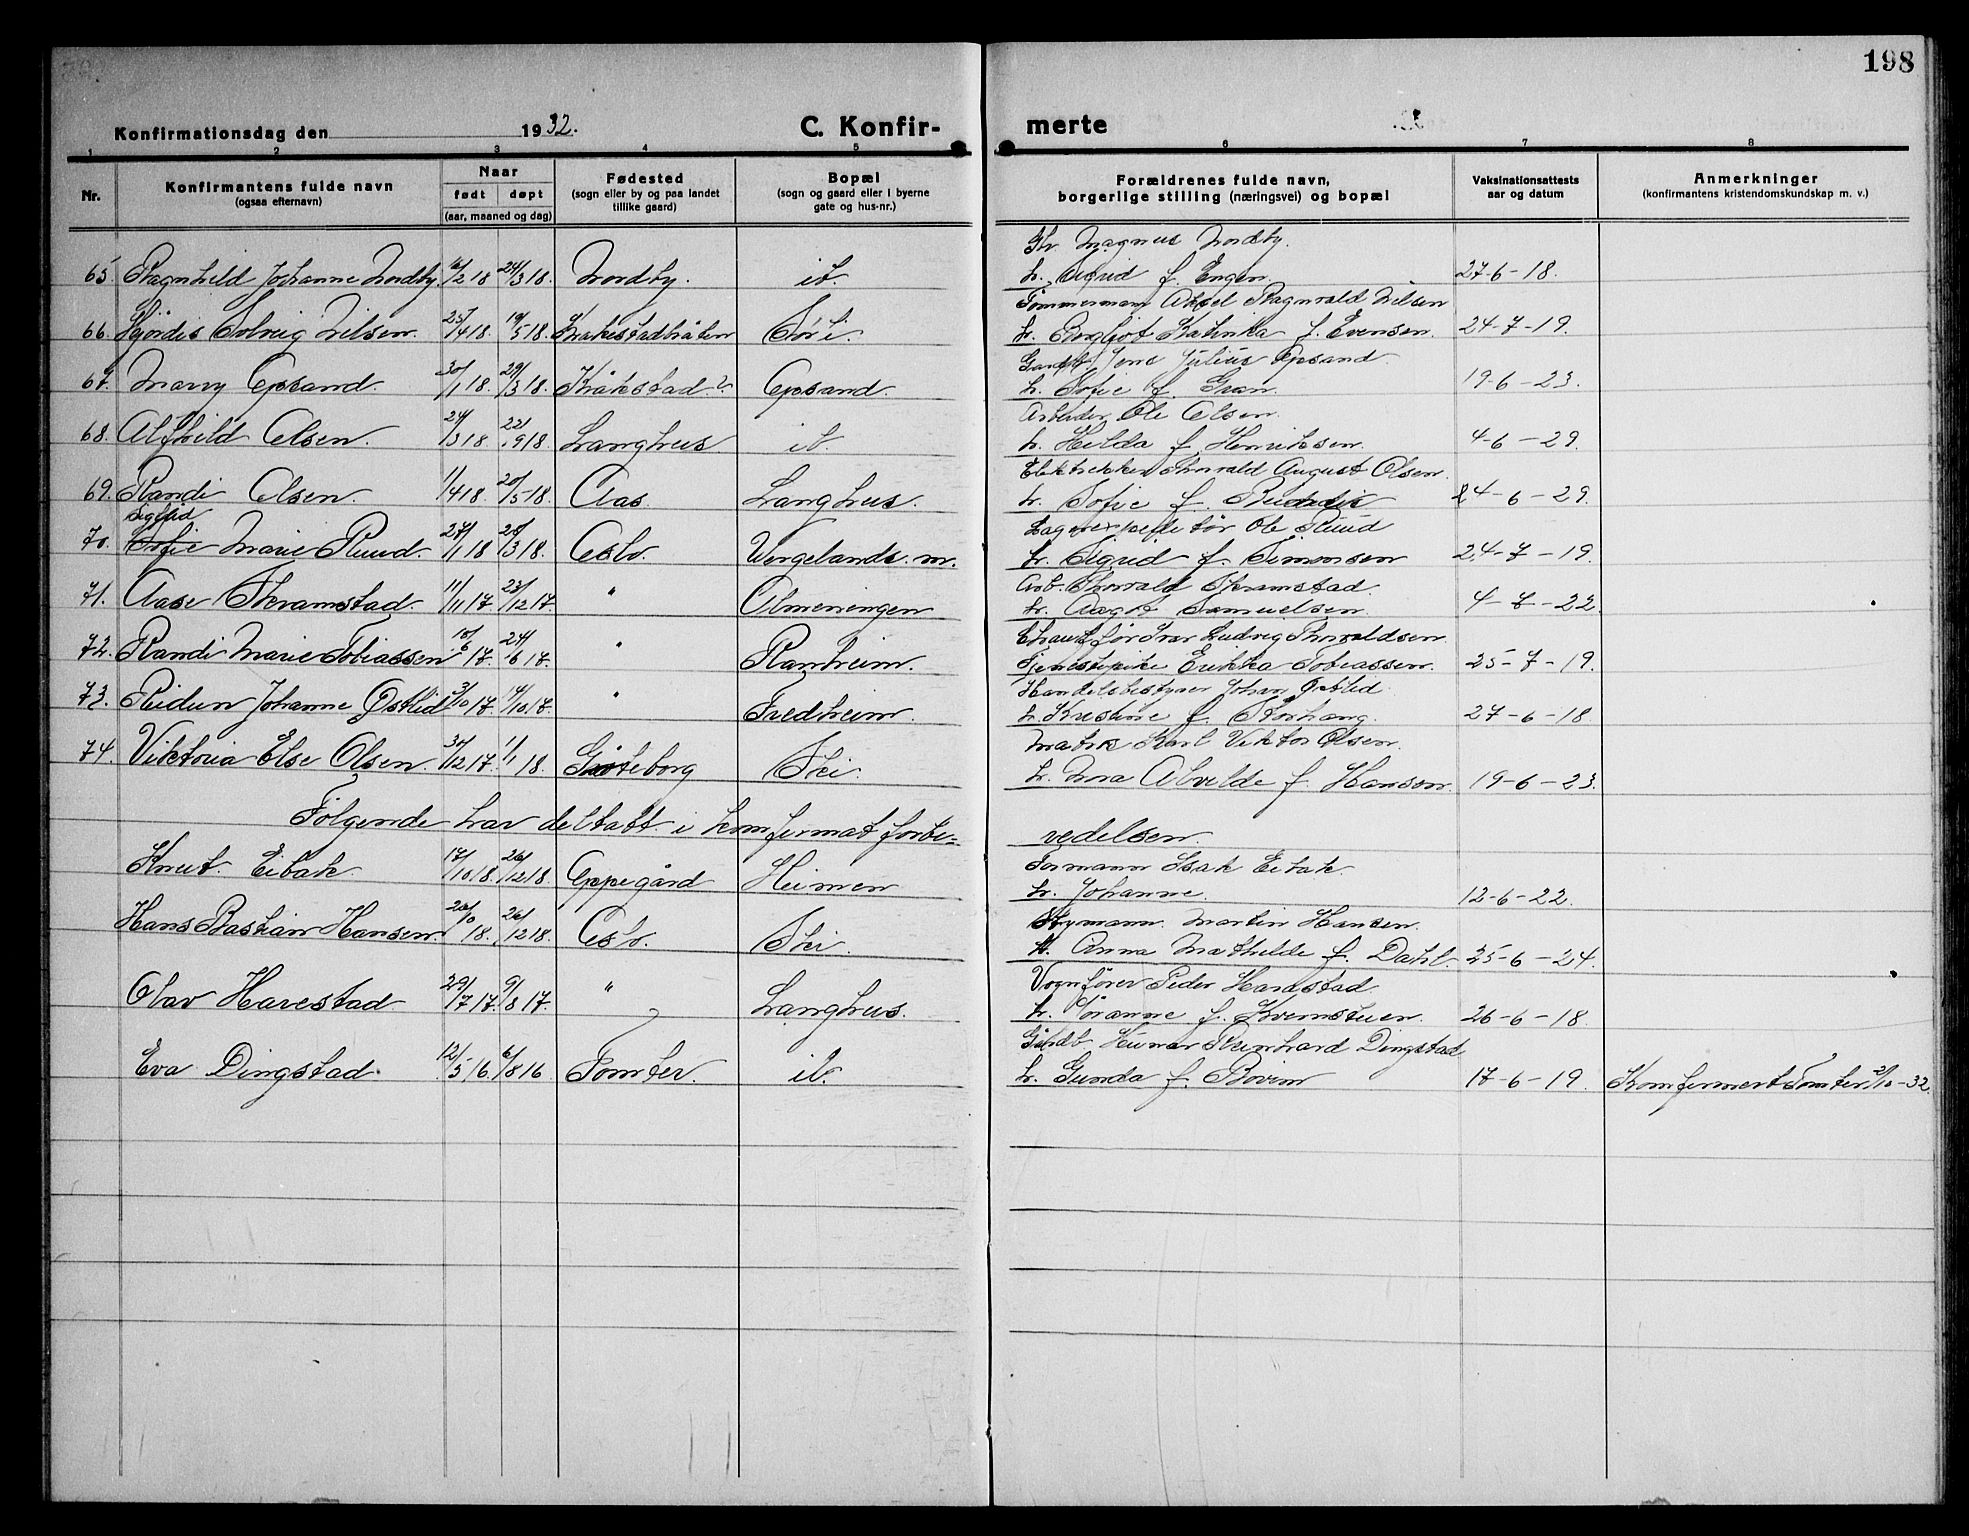 198
Konfirmationsdag den 1932.
C. Konfir-
merte
1 2 3 4 5 6 7 8
Nr.
Konfirmantens fulde navn
(ogsaa efternavn)
Naar
født døpt
(aar, maaned og dag)
Fødested
(sogn eller by og paa landet
tillike gaard)
Bopæl
(sogn og gaard eller i byerne
gate og hus-nr.)
Forældrenes fulde navn,
borgerlige stilling (næringsvei) og bopæl
Vaksinationsattests
aar og datum
Anmerkninger
(konfirmantens kristendomskundskap m. v.)
Magnus Nordby.
65. Ragnhild Johanne Nordby 16/2 18 24/3 18. Nordby. ib. h. Sigrid f. Engen 27-6-18.
Tømmermann Aksel Ragnvald Nilsen
66. Hjördis Solveig Nilsen. 25/4 18. 19/5 18. Krakstadbråten Ski. h. Borghot Katinka f. Evensen. 24-7-19.
Gaardb. Jens Julius Opsand.
67. Marry Opsand. 30/1 18. 29/3 18. Kråkstad? Opsand. h. Sofie f. Gran. 19-6-23.
Arbeider Ole Olsen.
68. Alfhild Olsen. 24/3 18. 22/9 18. Langhus ib. h. Hilda f. Henriksen. 4-6-29.
Elektrikker Thorvald August Olsen.
69. Randi Olsen. 1/4 18. 20/5 18. Aas. Langhus. h. Sofie f. 24-6-29.
Sigfrid
Lagerexpeditör Ole Ruud
70. Sofie Marie Ruud. 27/1 18 28/3 18. Oslo. Wergelands. h. Sigrid f. Simonsen 24-7-19.
Arb. Thorvald Skramstad.
71. Aase Skramstad. 11/11 17 23/12 17 " Almeningen h. Aagot Samuelsen. 4-7-22.
Chauffør Ivar Ludvig Thorvaldsen.
72. Randi Marie Tobiassen 10/6 17. 24/6 17. " Ranheim. Tjenestepike Erikka Tobiassen. 25-7-19.
Handelsbestyrer Johan Østlid
73. Reidun Johanne Østlid 3/10 17. 14/10 17. " Fredheim. h. Kristine f. 27-6-18
Matrs Karl Viktor Olsen.
74. Viktoria Else Olsen. 30/12 17. 1/1 18. Gøteborg Ski. h. Nora Alvilde f. Hanson. 19-6-23.
Følgende har deltatt i konfirmat forbe- redelsen.
Formann Isak Eibak.
Knut Eibak 17/10 18. 26/12 18. Oppegård Heimen h. Johanne. 12-6-22.
Styrmann. Martin Hansen.
Hans Bastian Hansen. 20/10 18. 26/12 18. Oslo. Ski. h. Anna Mathilde f. Dahl. 25-6-24.
Vognfører Peder Harestad
Olav Harestad 29/7 17. 9/8 17. " Langhus. h. f. Kvernstuen. 26-6-18.
Gårdb. Reinhard Dingstad
Eva Dingstad. 12/5 16. 6/8 16 Tomter. ib. h. Gunda f. Bovim 17-6-19. Komfermert Tomter 2/10-32.